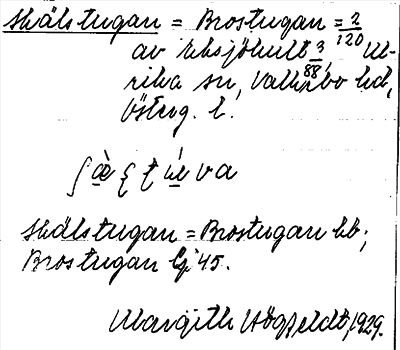 Skälstugan = Brostugan = 2/120
av Eksjöhult 3/88 Ul-
rika sn, Valkebo hd,
Österg. l.
Skälstugan = Brostugan hb;
Brostugan Lj 45.
Margith Högfeldt, 1929.